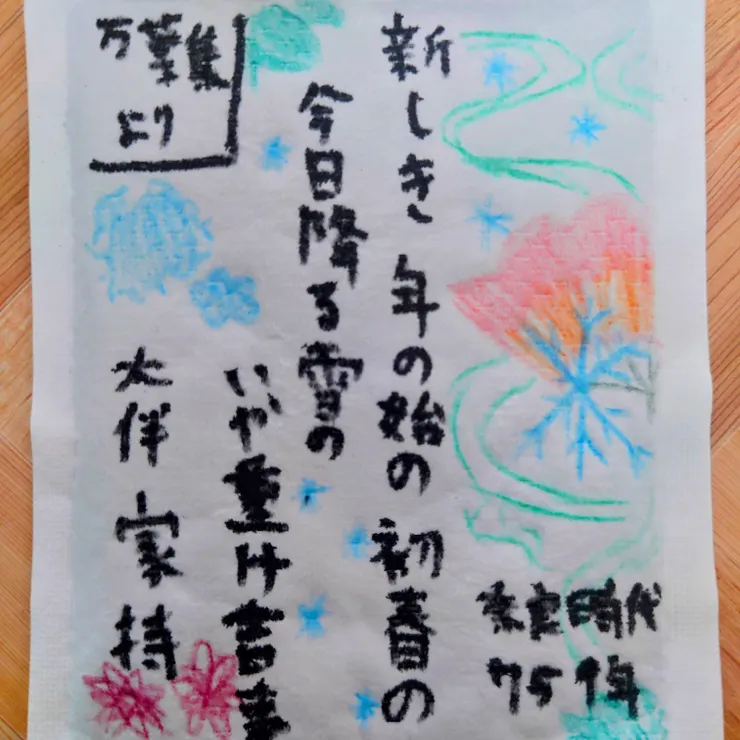 新しき 年の始の 初春の
今日降る雪の
いや重け吉事
大伴 家持
万葉集
より
奈良時代
759年